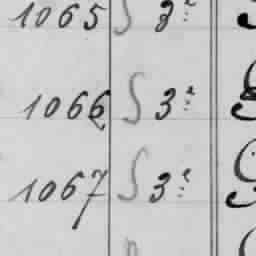 1065 S 3e
1066 S 3e
1067 S 3e